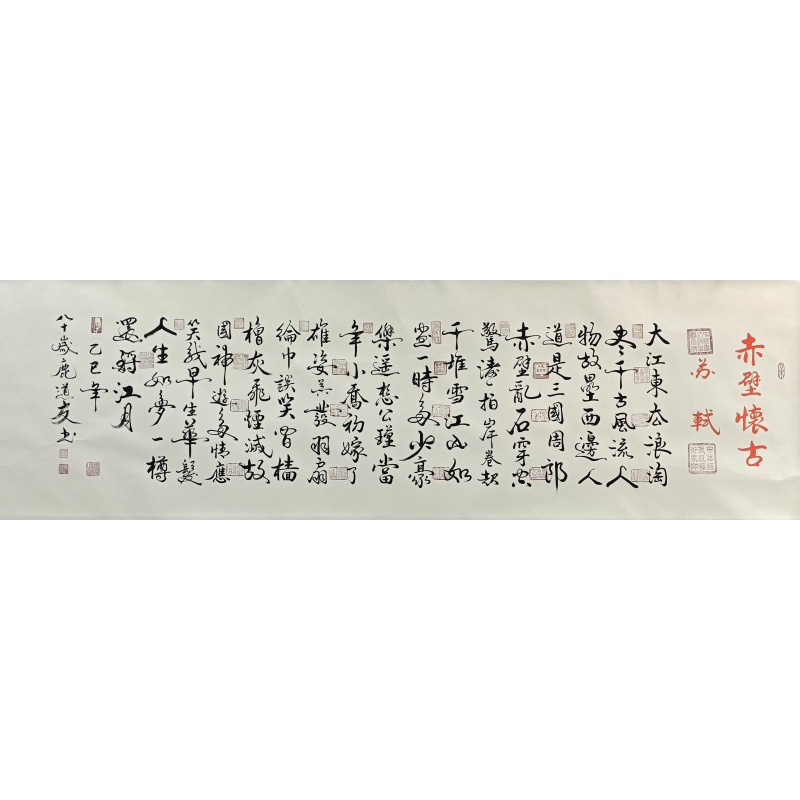 赤壁懷古
苏軾
大江東去浪淘
尽千古風流人
物故壘西邊人
道是三國周郎
赤壁亂石穿空
驚濤拍岸卷起
千堆雪江山如
畫一時多少豪
傑遥想公瑾當
年小喬初嫁了
雄姿英發羽扇
綸巾談笑間檣
櫓灰飛煙滅故
國神遊多情應
笑我早生華髮
人生如夢一樽
還酹江月
乙巳年
八十歲鹿道友书